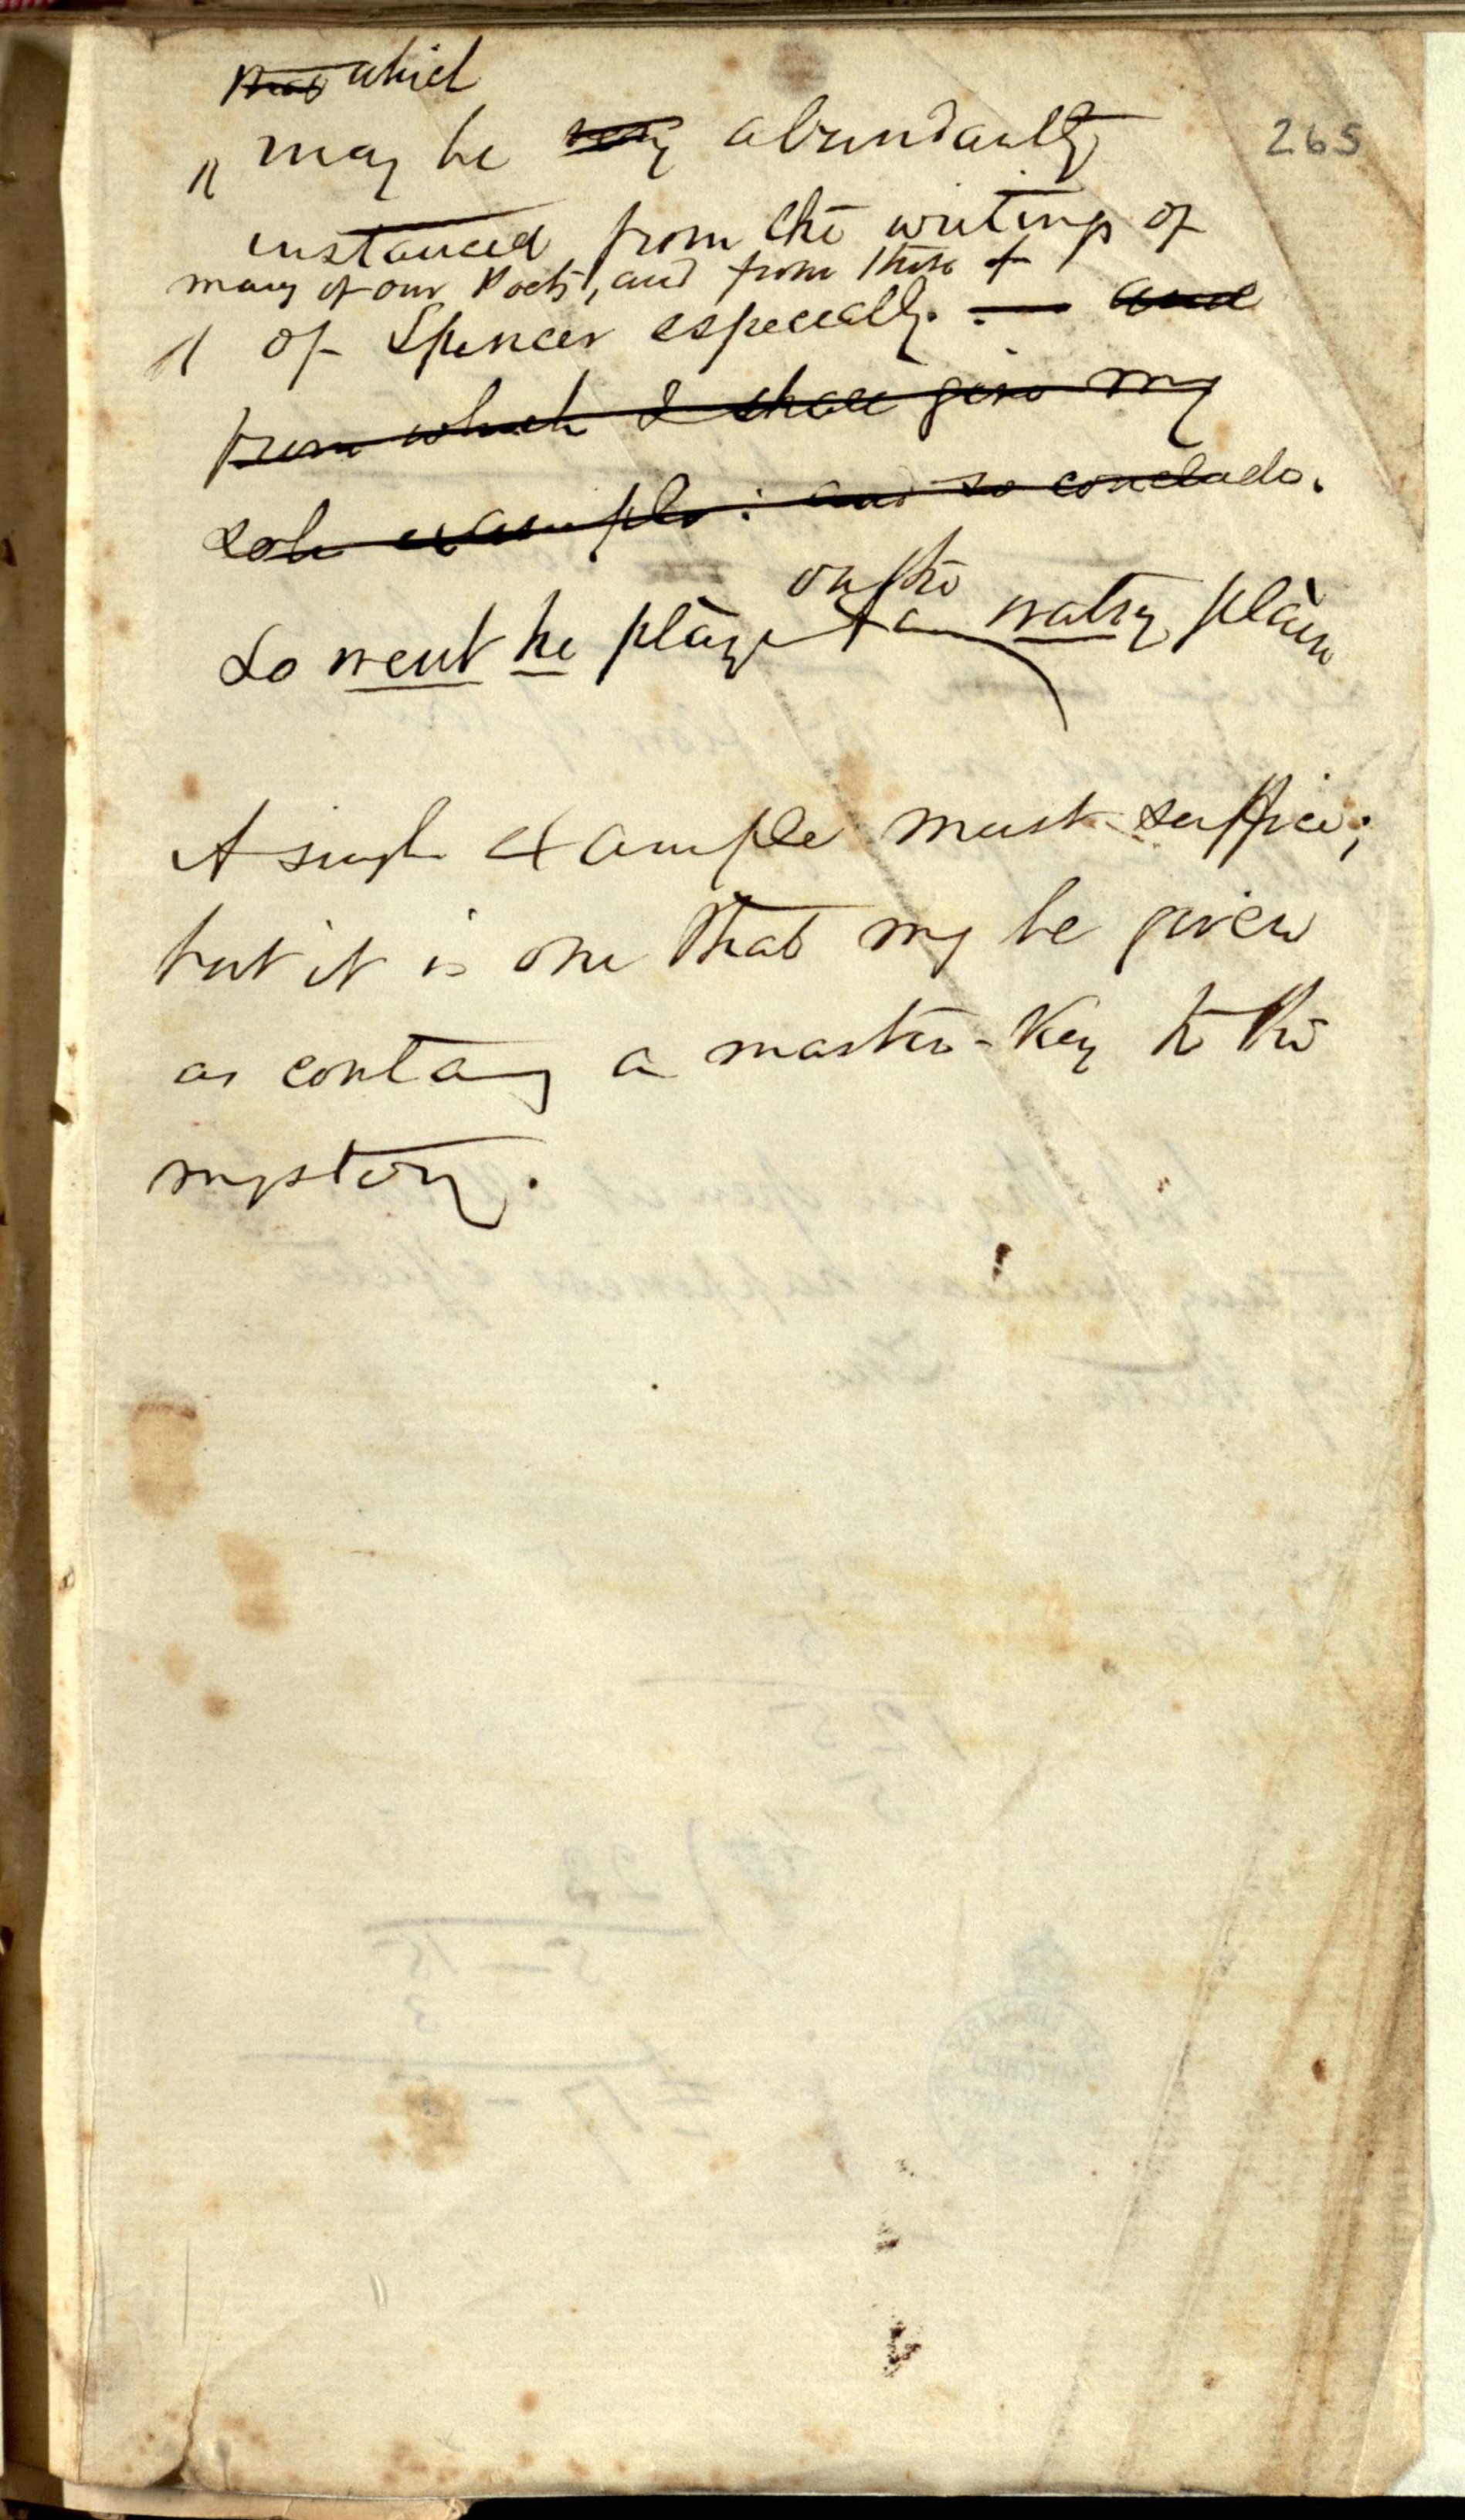 that which
may be very abundantly
265
instanced from the writings of
many of our Poets, and from those of
of Spencer especially. — and
from which I shall give my
sole example: and so conclude.
on the
So went he playing watry plain
A single example must suffice;
but it is one that my be given
as containg a master-key to the
mystery.